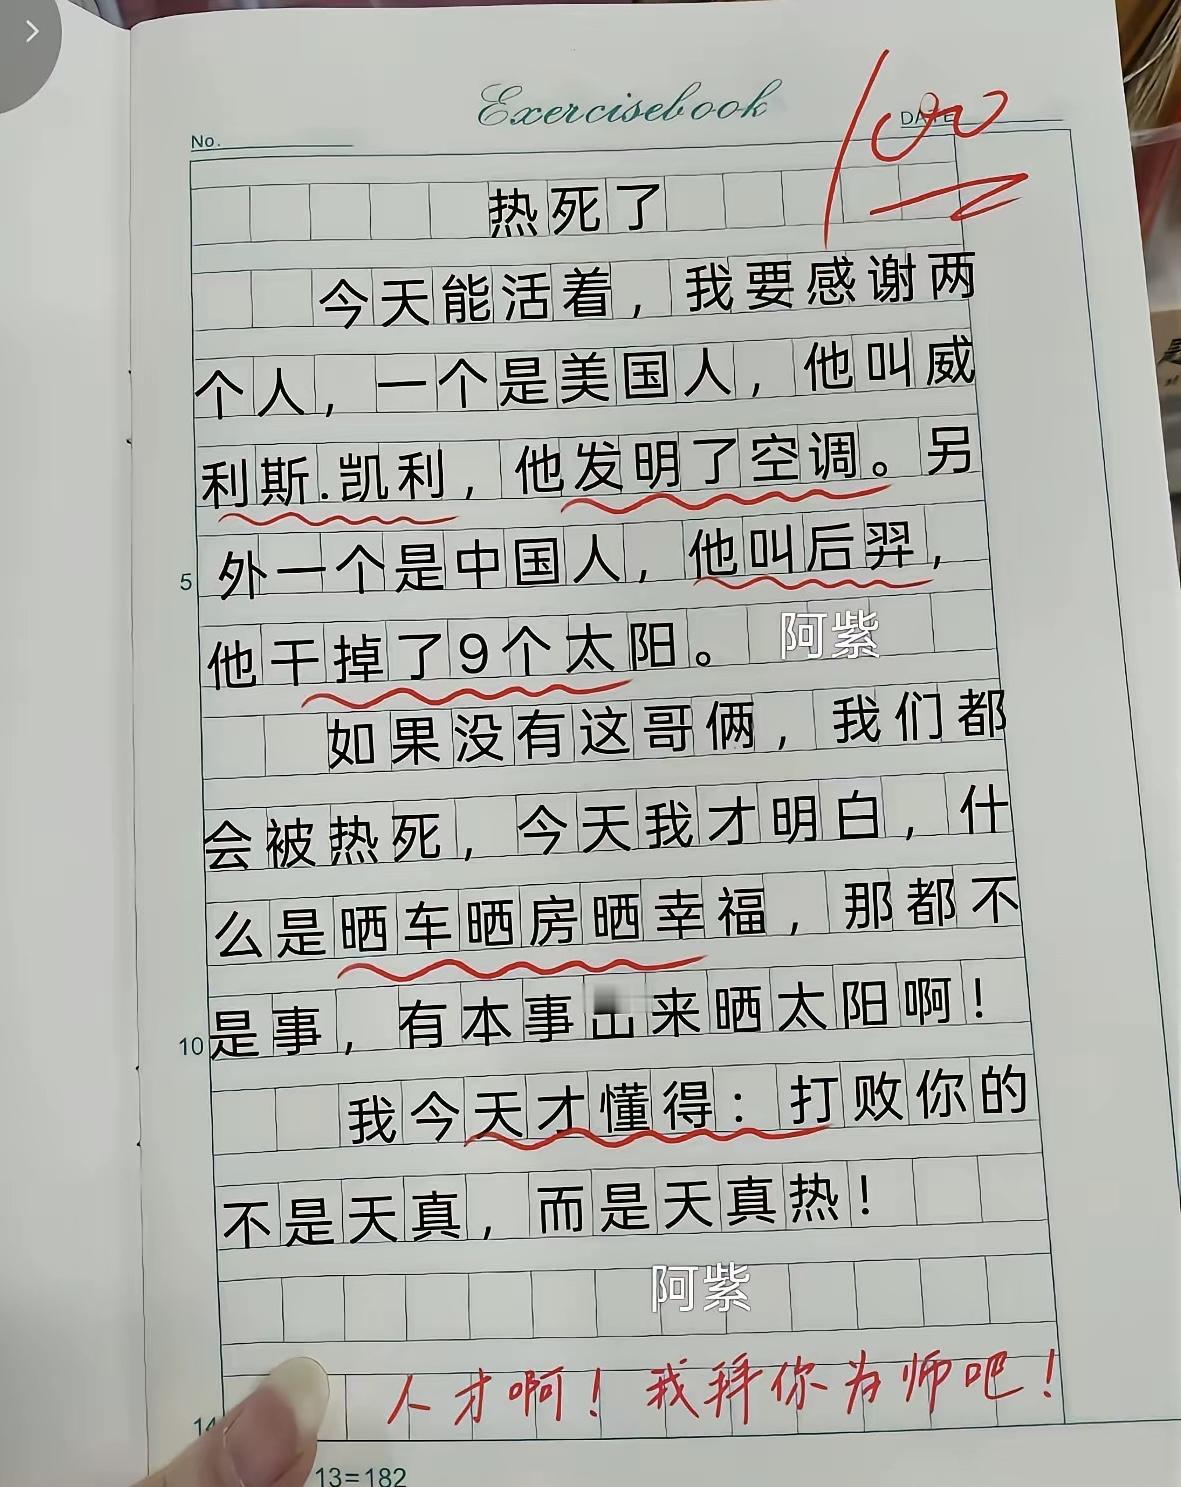 Exercisebook
No.
DATE
100
热死了
今天能活着，我要感谢两
个人，一个是美国人，他叫威
利斯.凯利，他发明了空调。另
5
外一个是中国人，他叫后羿，
他干掉了9个太阳。
阿紫
如果没有这哥俩，我们都
会被热死，今天我才明白，什
么是晒车晒房晒幸福，那都不
10
是事，有本事出来晒太阳啊！
我今天才懂得：打败你的
不是天真，而是天真热！
阿紫
人才啊！我拜你为师吧！
14
13=182